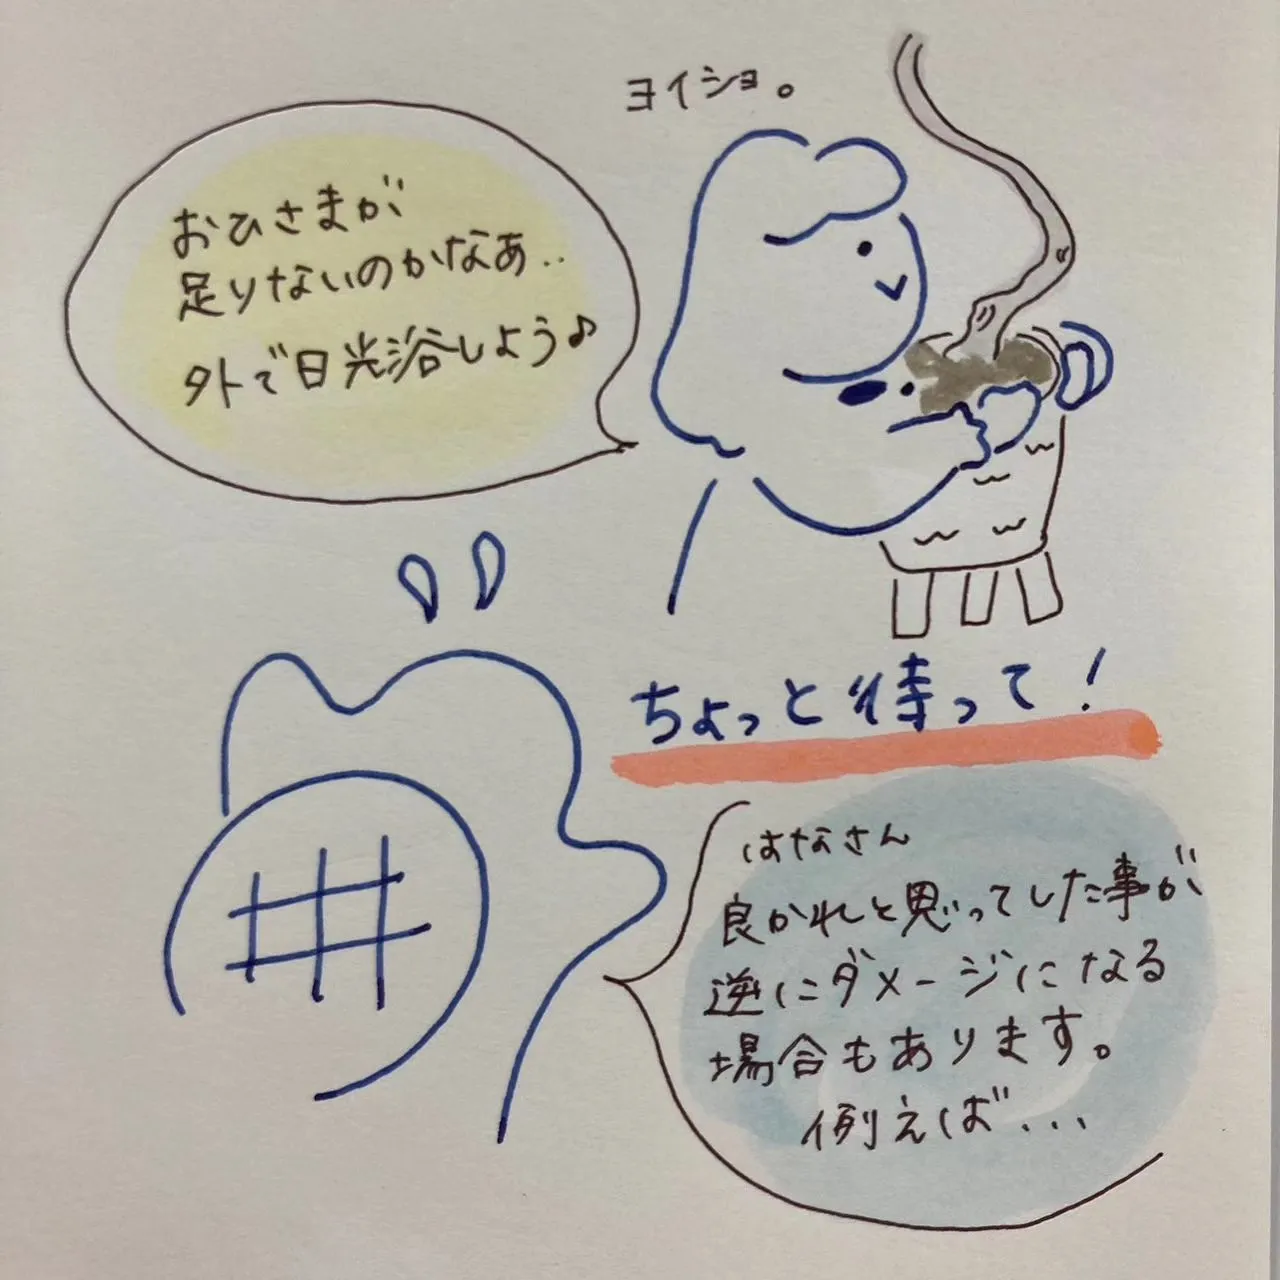 ヨイショ。
おひさまが
足りないのかなぁ..
外で日光浴しよう♪
ちょっと待って！
はなさん
良かれと思ってした事が
逆にダメージになる
場合もあります。
例えば...